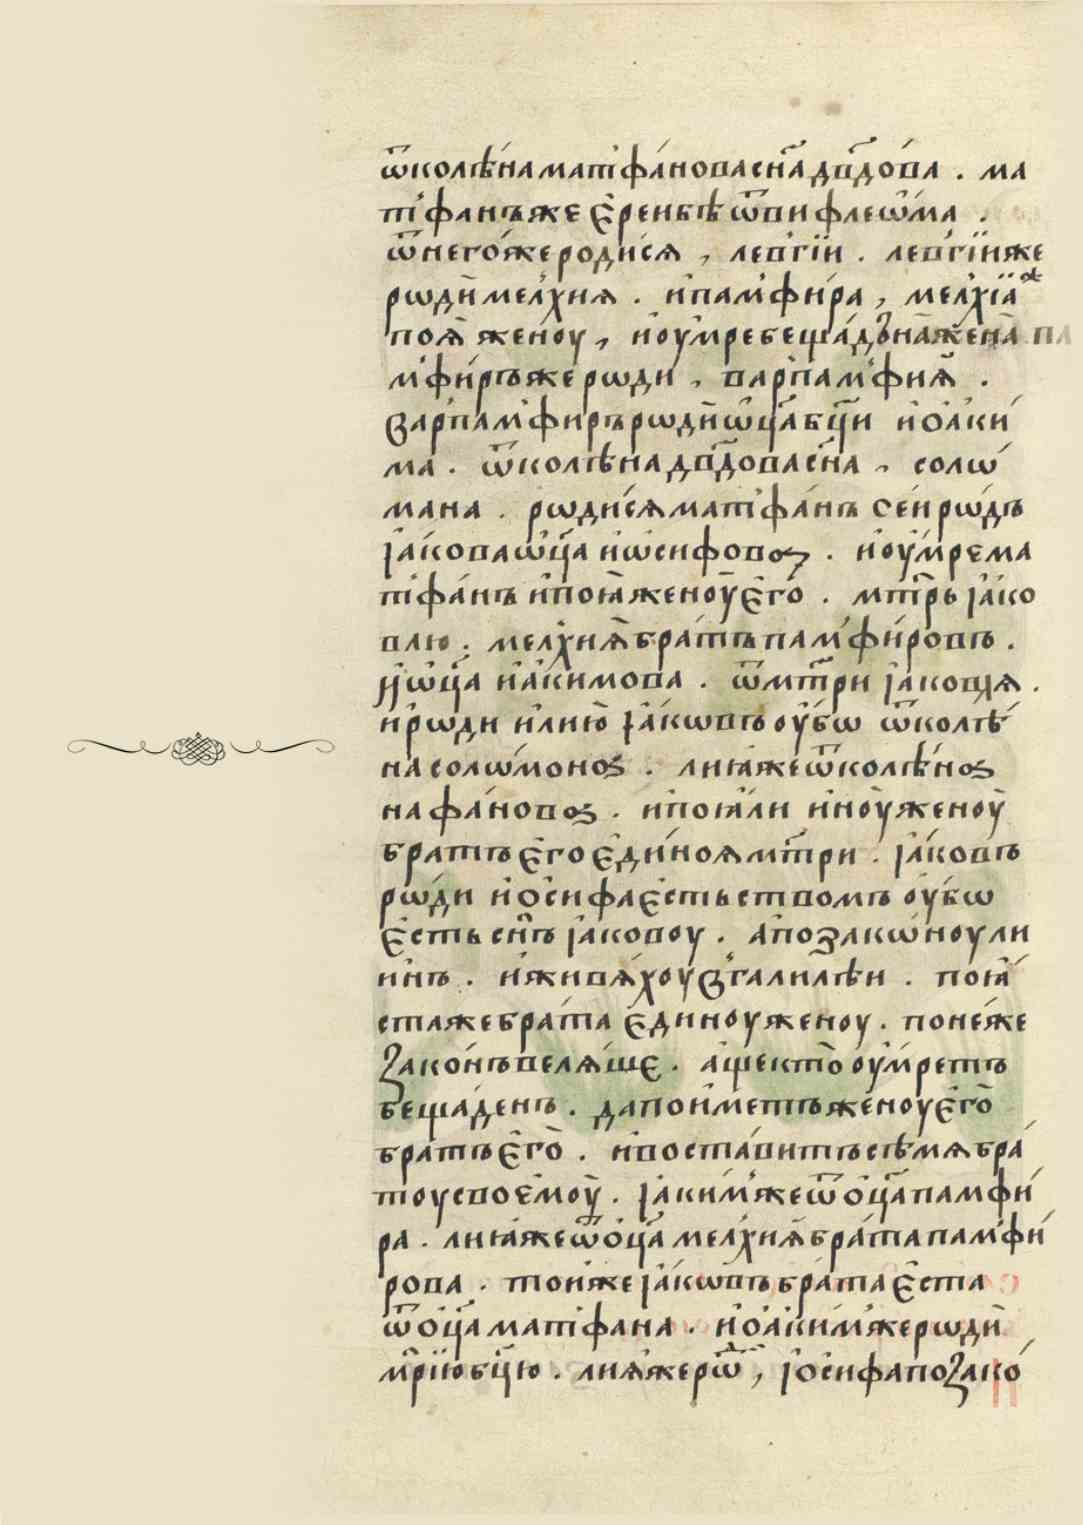 ѿколѣ́на матѳа́нова сн҃а дв҃до́ва . ма
тѳанъ же є҆реи бѣ ѿ виѳлеѡ́ма .
ѿ него́же роди́ся , леѵгїи . леѵгїи же
рѡди̏ мелхия . и҆ памфи́ра , мелхїа ж
поя̀ жену , и҆ оу҆мре беща́дъна̀ жена̀ . па
мфи́ръ же рѡди , варпамфия̀ .
варпамфиръ рѡди̏ ѡ҆ц҃а бц҃и и҆оа҆ки́
ма . ѿ колѣна дв҃дова сн҃а , солѡ́
мана . рѡди́ся матѳа́нъ сеи рѡ́дъ
і҆а́кова ѡ҆ц҃а и҆ѡсифовоу . и҆ оу҆́мре ма
тѳа́нъ и҆ поꙗ̀ женоу̀ є҆го̀ . мт҃рь і҆а́ко
влю . мелхия̀ бра́тъ памфи́ровъ .
и҆ ѡ҆ц҃а и҆а҆кимова . ѿ мт҃ри і҆а́ковля .
и҆ рѡди и҆лию̀ і҆а́кѡвъ оу҆́бѡ ѿ колѣ́
на солѡ́моноу . лиꙗ же ѿ колѣ́ноу
наѳа́новоу . и҆ поꙗли и҆ноу̀ женоу̀
братъ є҆го є҆ди́ноя мт҃ри . і҆а́ковъ
рѡ́ди и҆о҆сифа є҆стьствомъ оу҆́бѡ
є҆сть сн҃ъ і҆а́ковоу . а҆ по закѡ́ноу ли
инъ . и҆ живя́хоу в галилѣи . поꙗ́
ста же бра́та є҆диноу женоу . поне́же
зако́нъ веля́ше . а҆ще кто̀ оу҆́мретъ
беща́денъ . да пои́метъ же́ноу є҆го̀
братъ є҆го̀ . и҆ воста́витъ сѣ́мя бра́
тоу своемоу̀ . і҆а́ки́м же ѿ о҆ц҃а памфи́
ра . лиꙗ же ѿ о҆ц҃а мелхия̀ бра́та памфи́
рова . тои же і҆а́кѡвъ бра́та є҆ста
ѿ о҆ц҃а матѳана . и҆оа҆ки́м же рѡди̏
мр҃їю бц҃ю . лия́ же рѡⷣ , і҆о҆сифа по зако́